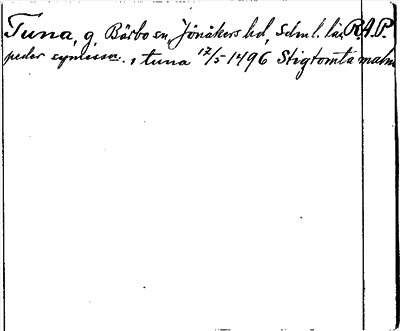 Tuna, g. Bärbo sn, Jönåkers hd, Sdml. län R.A.P.
peder symissn. i tuna 17/5 1496 Stigtomta malm